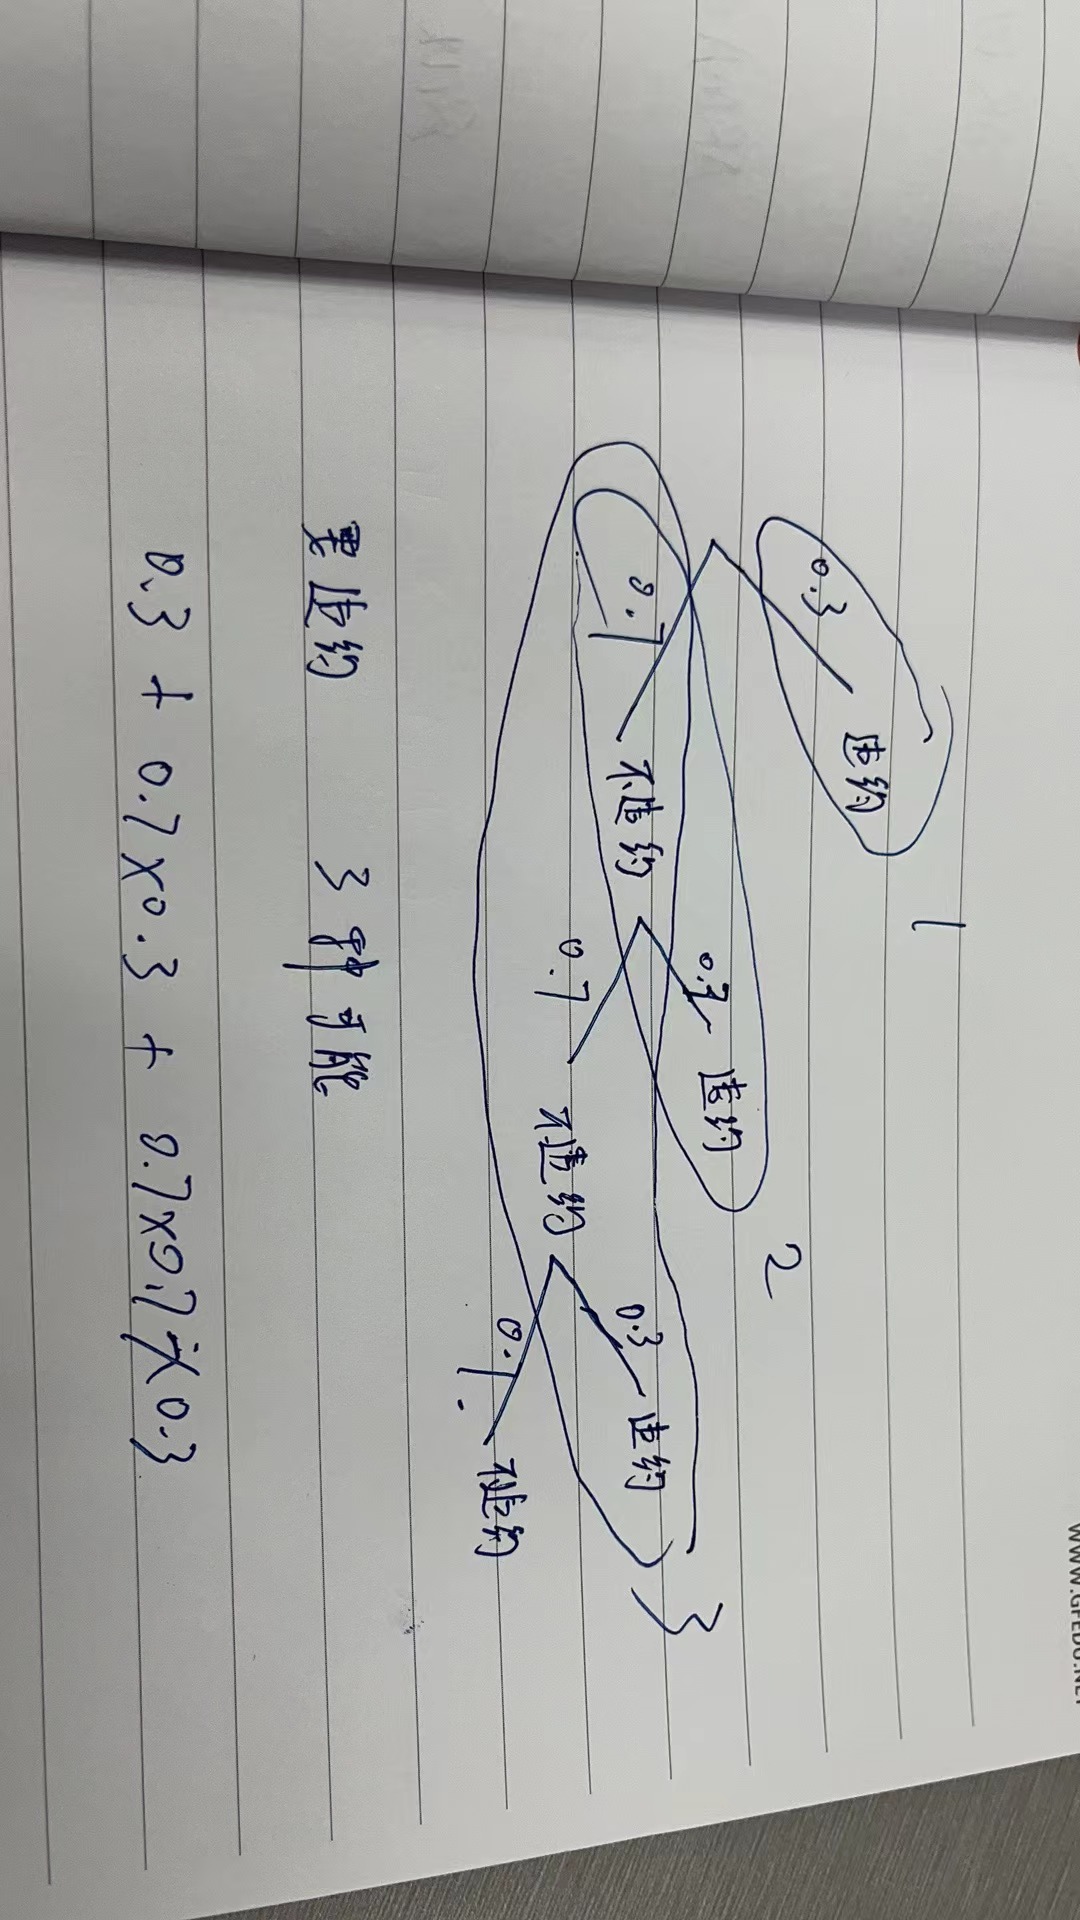 WWW.GFEDU.NET
0.3 违约 1
0.7 不违约 0.3 违约 2
0.7 不违约 0.3 违约 3
0.7 不违约
要违约 3种可能
0.3 + 0.7×0.3 + 0.7×0.7×0.3